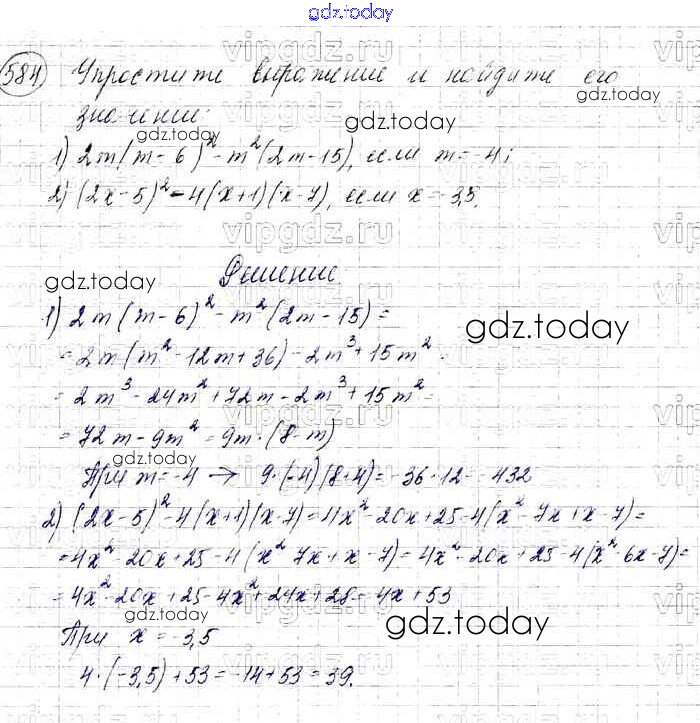 gdz.today
584) Упростите выражение и найдите его
gdz.today
значение:
gdz.today
gdz.today
1) 2m(m-6)² - m²(2m-15), если m = -4;
2) (2x-5)² - 4(x+1)(x-7), если x = -3,5.
gdz.today
Решение
gdz.today
1) 2m(m-6)² - m²(2m-15) =
gdz.today
= 2m(m² - 12m + 36) - 2m³ + 15m² =
= 2m³ - 24m² + 72m - 2m³ + 15m² =
= 72m - 9m² = 9m·(8-m)
gdz.today
При m = -4 → 9·(-4)(8+4) = -36·12 = -432
2) (2x-5)² - 4(x+1)(x-7) = 4x² - 20x + 25 - 4(x² - 7x + x - 7) =
= 4x² - 20x + 25 - 4(x² 7x + x - 7) = 4x² - 20x + 25 - 4(x² - 6x - 7) =
= 4x² - 20x + 25 - 4x² + 24x + 28 = 4x + 53
gdz.today
gdz.today
При x = -3,5
4·(-3,5) + 53 = -14 + 53 = 39.